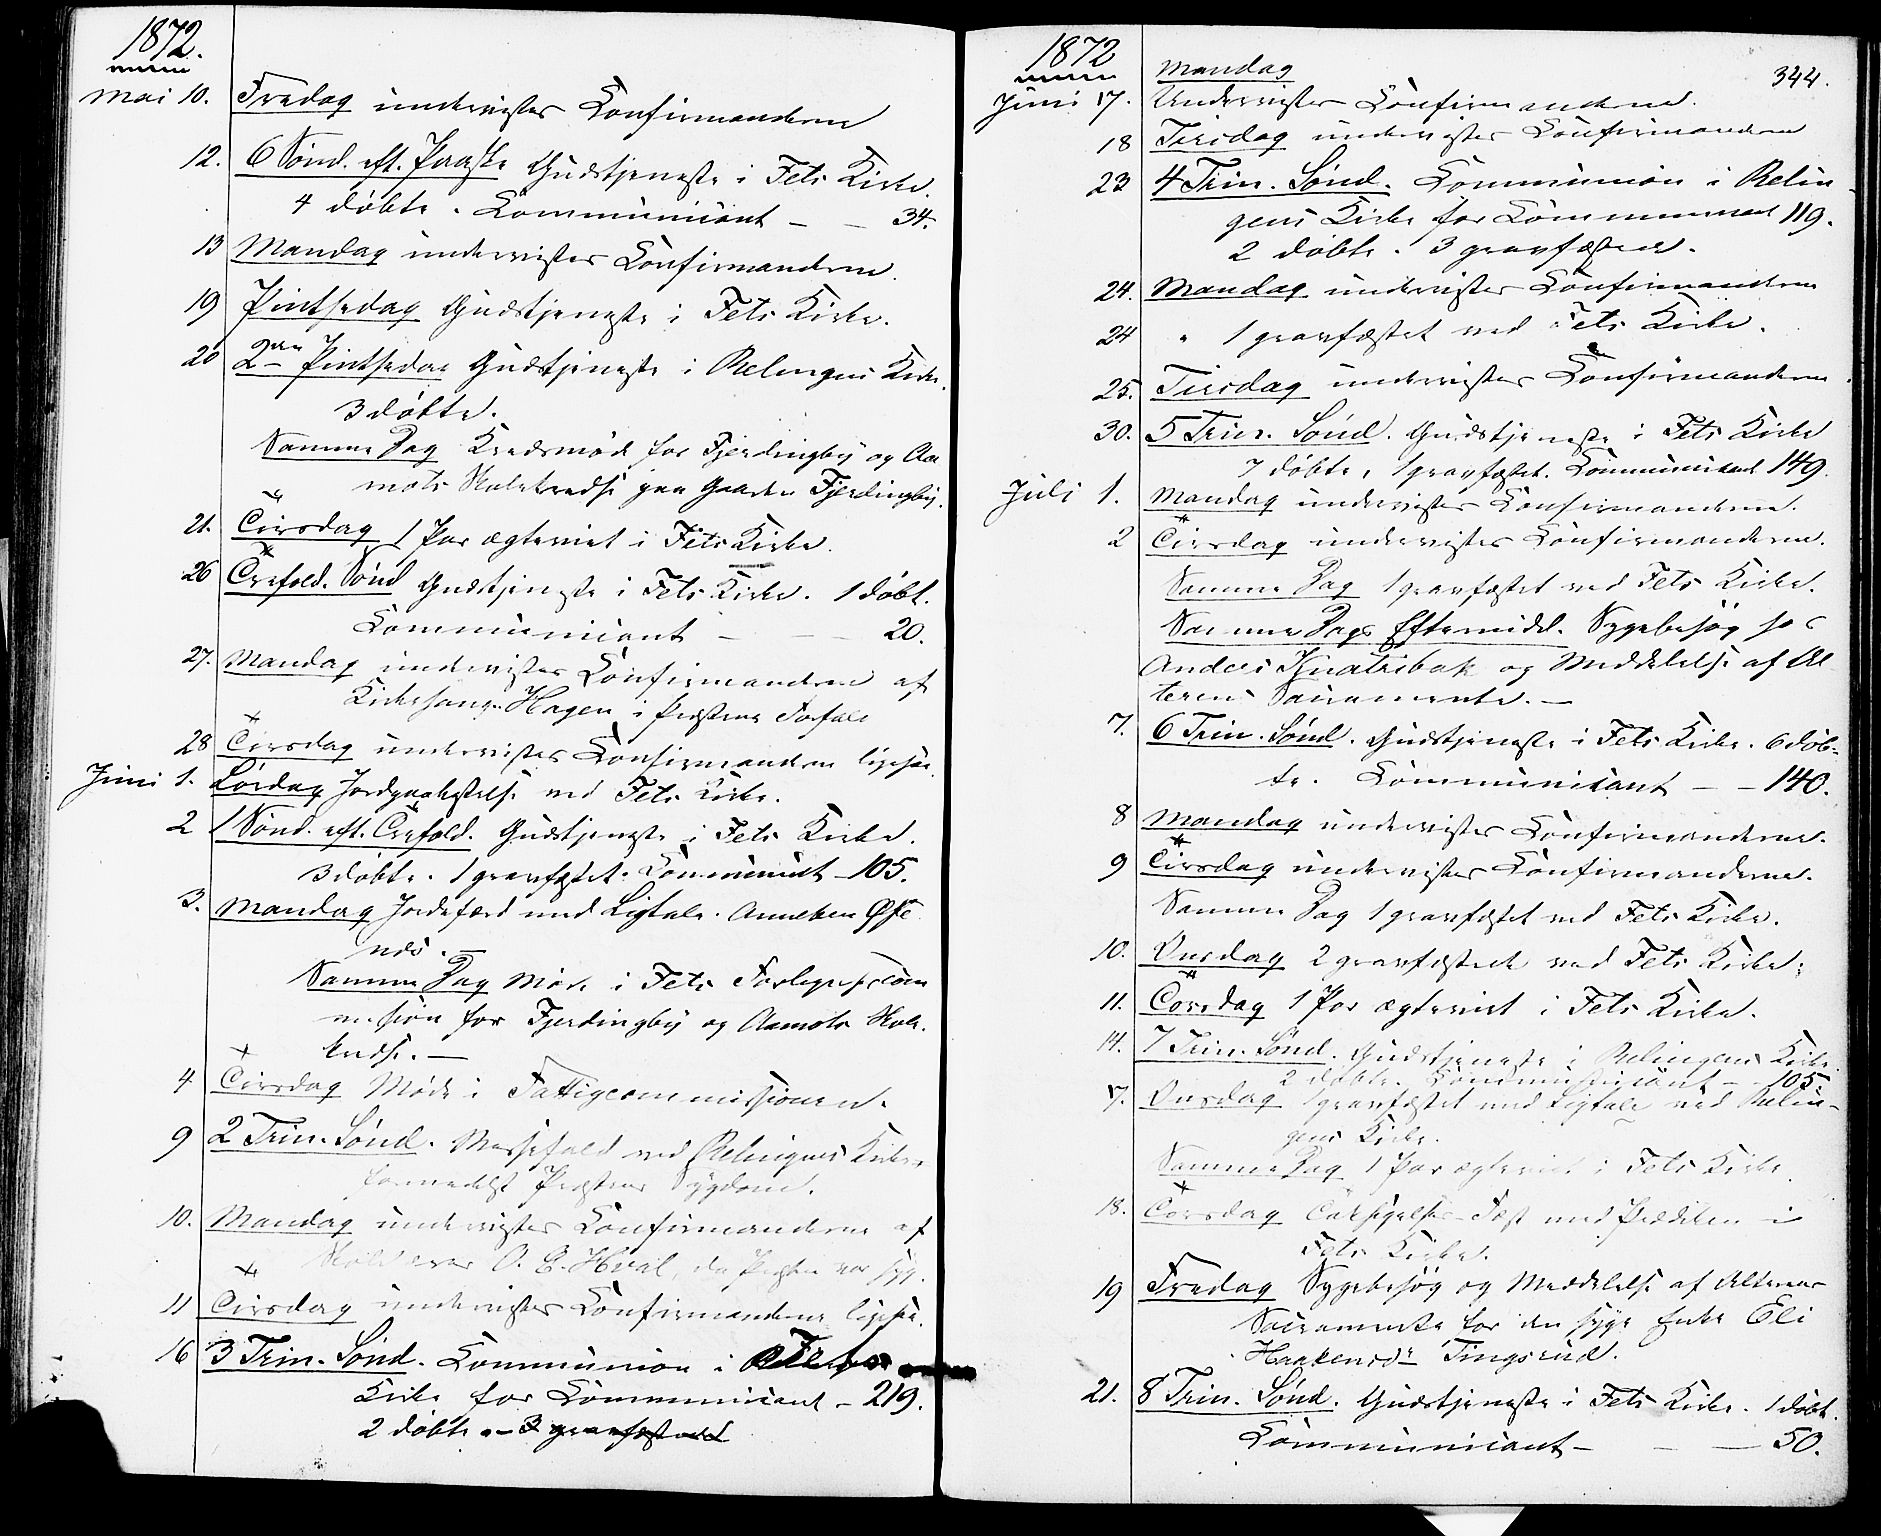 1872.
Mai 10. Fredag undervistes Confirmanderne
12. 6 Sønd. eft. Paaske Gudstjeneste i Fets Kirke.
4 døbte. Communicant — — 34.
13 Mandag undervistes Confirmanderne.
19 Pintsedag Gudstjeneste i Fets Kirke.
20 2den Pintsedag Gudstjeneste i Relingens Kirke.
3 døbte.
Samme Dag Kredsmøde for Fjerdingby og Aa
mots Skolekredse paa Gaarden Fjerdingby.
21. Tirsdag 1 Par ægteviet i Fets Kirke.
26 Trefold. Sønd Gudstjeneste i Fets Kirke. 1 døbt.
Communicant — — 20.
27. Mandag undervistes Confirmanderne af
Kirkesanger Hagen i Præstens Forfald
28 Tirsdag undervistes Confirmanderne ligesaa.
Juni 1. Lørdag Jordpaakastelse ved Fets Kirke.
2 1 Sønd. eft. Trefold. Gudstjeneste i Fets Kirke.
3 døbte. 1 gravfæstet. Communicant — 105.
3. Mandag Jordefærd med Ligtale. Anneken Øste
næs. —
Samme Dag Møde i Fets Forligelsescom
mission for Fjerdingby og Aamots Skole
kredse. —
4 Tirsdag Møde i Fattigcommissionen.
9 2 Trin. Sønd. Messefald ved Relingens Kirke
formedelst Præstens Sygdom.
10. Mandag undervistes Confirmanderne af
Skolelærer O. E. Hval, da Præsten var syg.
11 Tirsdag undervistes Confirmanderne ligesaa.
16 3 Trin. Sønd. Communion i Fets
Kirke for Communicant — 219.
2 døbte. — 3 gravfæstede
1872
344.
Mandag
Juni 17. Undervistes Confirmanderne.
18 Tirsdag undervistes Confirmanderne
23 4 Trin. Sønd. Communion i Relin
gens Kirke for Communicant 119.
2 døbte. 3 gravfæstede.
24. Mandag undervistes Confirmanderne
24 " 1 gravfæstet ved Fets Kirke.
25. Tirsdag undervistes Confirmanderne.
30. 5 Trin. Sønd. Gudstjeneste i Fets Kirke
7 døbte, 1 gravfæstet. Communicant 149.
Juli 1. Mandag undervistes Confirmanderne.
2 Tirsdag undervistes Confirmanderne.
Samme Dag 1 gravfæstet ved Fets Kirke.
Samme Dags Eftermidd. Sygebesøg hos
Anders Knatribak og Meddelelse af Al
terens Sacramente. —
7. 6 Trin. Sønd. Gudstjeneste i Fets Kirke. 6 døb-
te. Communicant — — 140.
8 Mandag undervistes Confirmanderne.
9 Tirsdag undervistes Confirmanderne.
Samme Dag 1 gravfæstet ved Fets Kirke.
10. Onsdag 2 gravfæstede ved Fets Kirke.
11. Torsdag 1 Par ægteviet i Fets Kirke.
14. 7 Trin. Sønd. Gudstjeneste i Relingens Kirke.
2 døbte. Communicant — 105.
17. Onsdag 1 gravfæstet med Ligtale ved Relin-
gens Kirke.
Samme Dag 1 Par ægteviet i Fets Kirke.
18. Torsdag Taksigelses-Fest med Prædiken i
Fets Kirke.
19 Fredag Sygebesøg og Meddelelse af Alterens
Sacramente for den syge Enke Eli
Haakensdr Tingsrud.
21. 8 Trin. Sønd. Gudstjeneste i Fets Kirke. 1 døbt.
Communicant — — — 50.